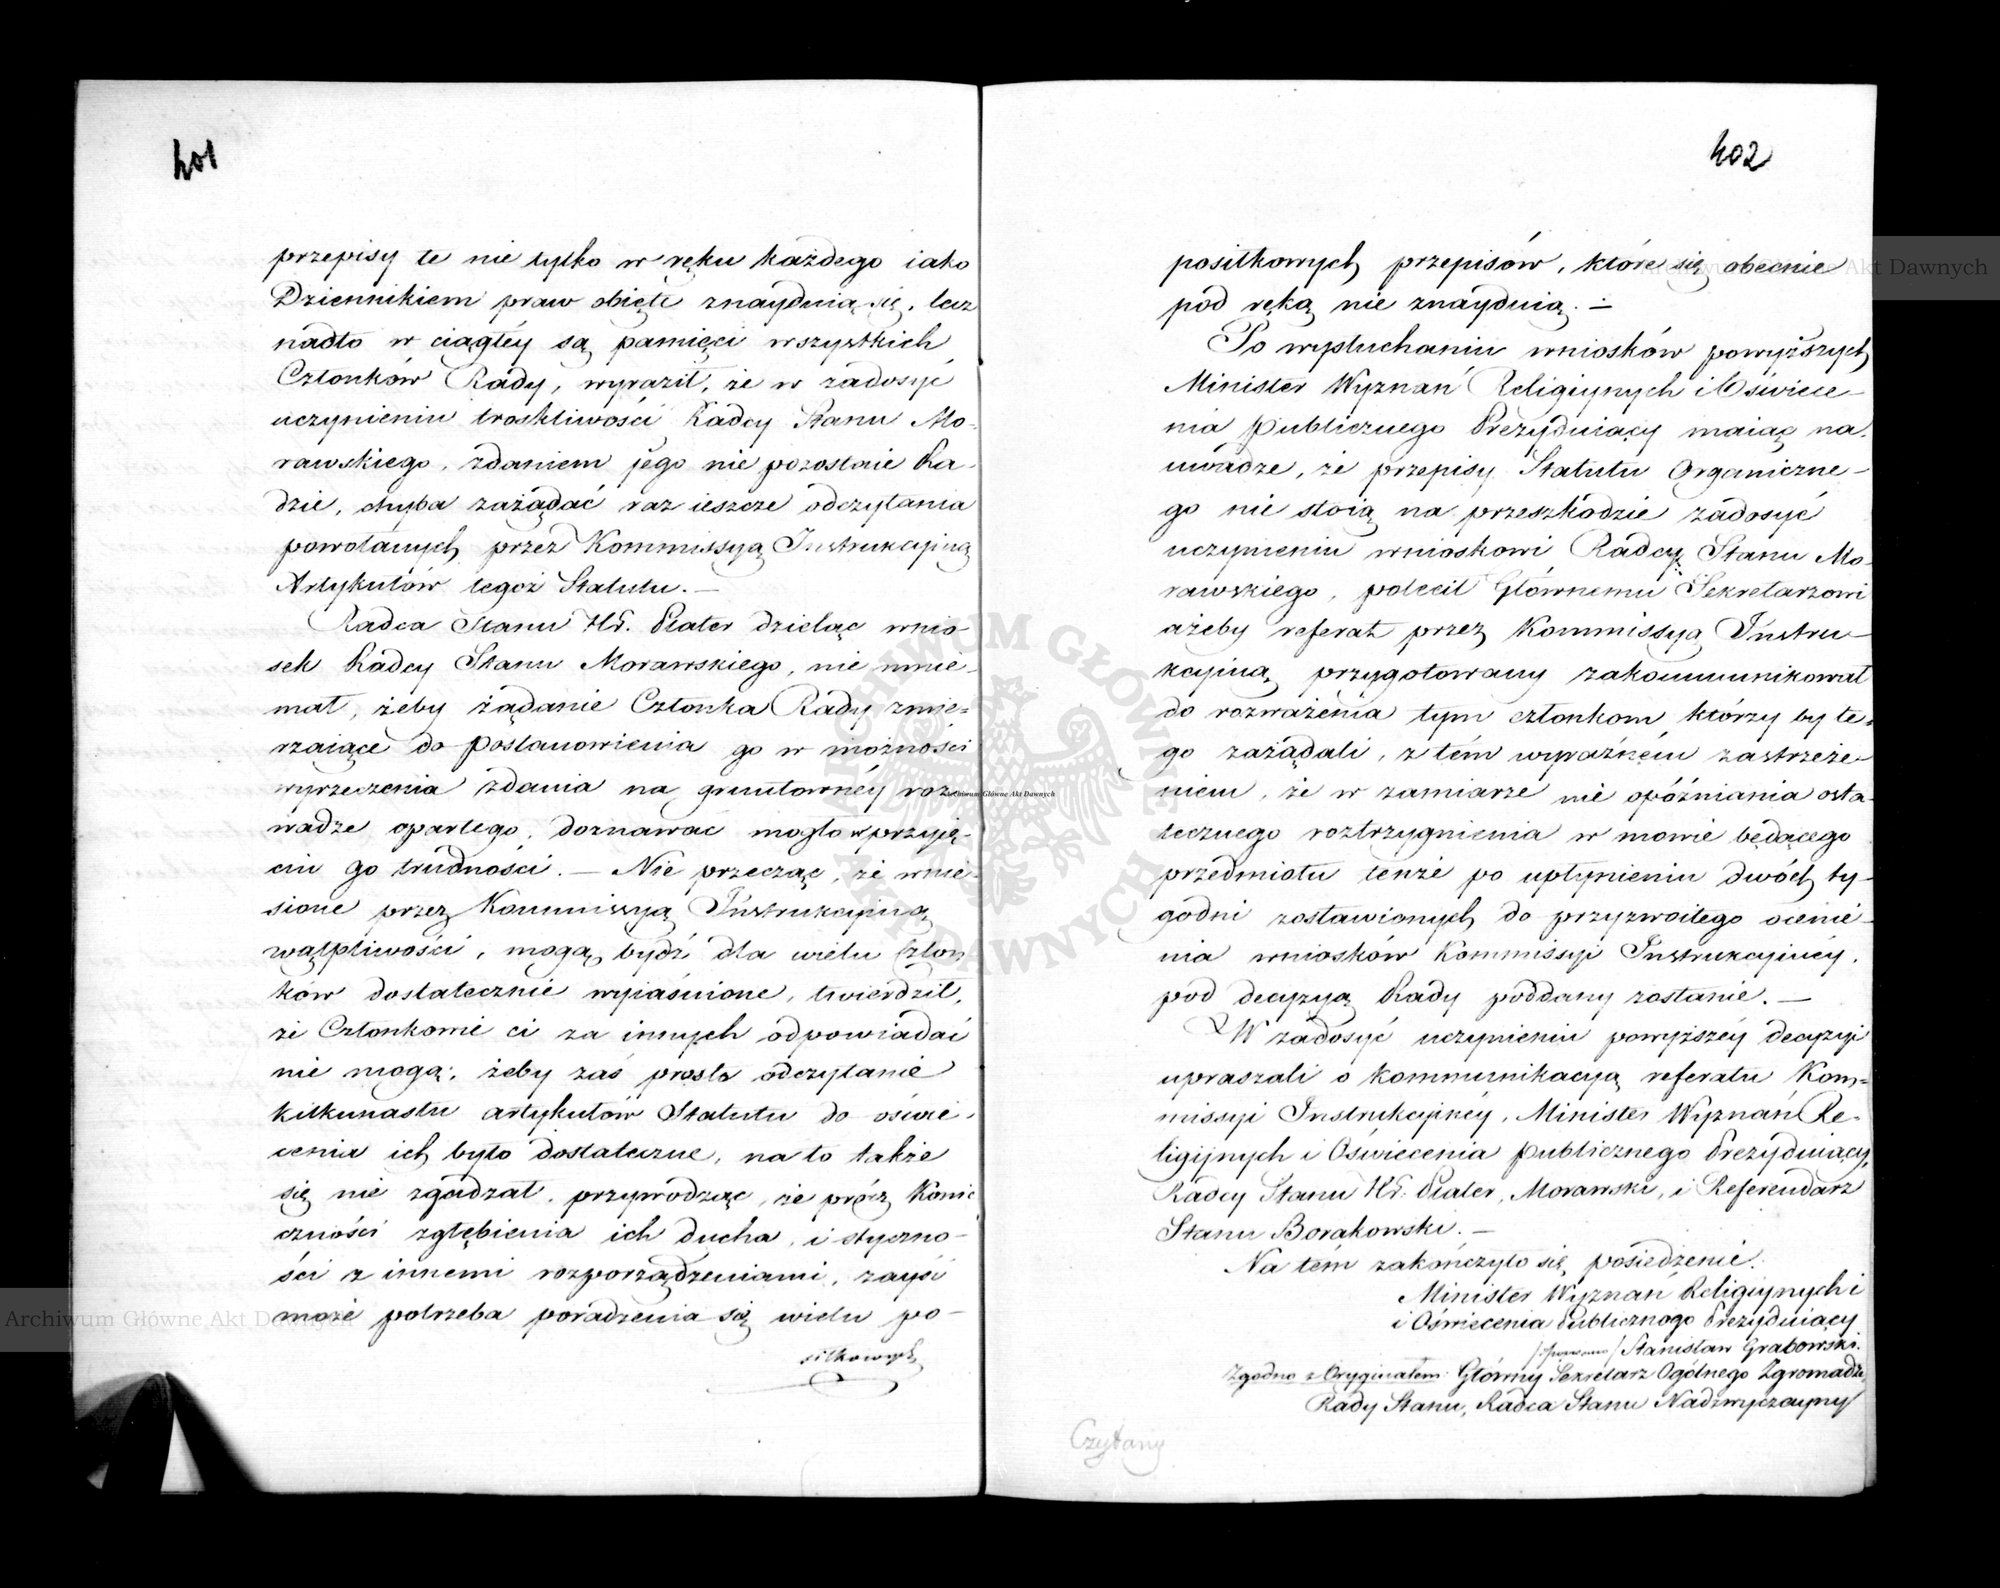 401
przepisy te nie tylko w ręku każdego iako
Dziennikiem praw obięte znayduią się, lecz
nadto w ciągłéy są pamięci wszystkich
Członków Rady, wyraził, że w zadosyć
uczynieniu troskliwości Radcy Stanu Mo-
rawskiego, zdaniem jego nie pozostaie Ra-
dzie, chyba zażądać raz ieszcze odczytania
powołanych przez Kommissyą Instrukcyiną
Artykułów tegoż Statutu. —
Radca Stanu Hr. Plater dzieląc wnio-
sek Radcy Stanu Morawskiego, nie mnie-
mał, żeby żądanie Członka Rady zmie-
rzaiące do postanowienia go w możności
wyrzeczenia zdania na gruntownéy roz-
wadze opartego, doznawać mogło w przyię-
ciu go trudności. — Nie przecząc, że wnie-
sione przez Kommissyą Instrukcyiną
wątpliwości, mogą bydź dla wielu Człon-
ków dostatecznie wyiaśnione, twierdził,
że Członkowie ci za innych odpowiadać
nie mogą; żeby zaś prosto odczytanie
kilkunastu artykułów Statutu do oświe-
cenia ich było dostateczne, na to także
się nie zgadzał, przywodząc, że prócz konie
czności zgłębienia ich ducha, i styczno-
ści z innemi rozporządzeniami, zayść
może potrzeba poradzenia się wielu po-
siłkowych
402
posiłkowych przepisów, które się obecnie
pod ręką nie znayduią. —
Po wysłuchaniu wniosków powyższych
Minister Wyznań Religiynych i Oświece-
nia Publicznego Prezyduiący maiąc na
uwadze, że przepisy Statutu Organiczne-
go nie stoią na przeszkodzie zadosyć
uczynieniu wnioskowi Radcy Stanu Mo-
rawskiego, polecił Głównemu Sekretarzowi
ażeby referat przez Kommissyą Instru-
kcyiną przygotowany zakommunikował
do rozważenia tym członkom, którzy by te-
go zażądali, z tém wyraźném zastrzeże-
niem, że w zamiarze nie opóźniania osta-
tecznego roztrzygnienia w mowie będącego
przedmiotu tenże po upłynieniu dwóch ty-
godni zostawionych do przyzwoitego ocenie-
nia wniosków Kommissyi Instrukcyinéy,
pod decyzyą Rady poddany zostanie. —
W zadosyć uczynieniu powyższéy decyzyi
upraszali o kommunikacyą referatu Kom-
missyi Instrukcyinéy, Minister Wyznań Re-
ligijnych i Oświecenia Publicznego Prezyduiący,
Radcy Stanu Hr. Plater, Morawski, i Referendarz
Stanu Borakowski. —
Na tém zakończyło się posiedzenie.
Minister Wyznań Religiynych i
i Oświecenia Publicznego Prezyduiący
/podpisano/ Stanisław Grabowski.
Zgodno z Oryginałem: Główny Sekretarz Ogólnego Zgromadze.
Rady Stanu, Radca Stanu Nadzwyczayny/
Czytany
ARCHIWUM GŁÓWNE AKT DAWNYCH
Archiwum Główne Akt Dawnych
Archiwum Główne Akt Dawnych
Archiwum Główne Akt Dawnych